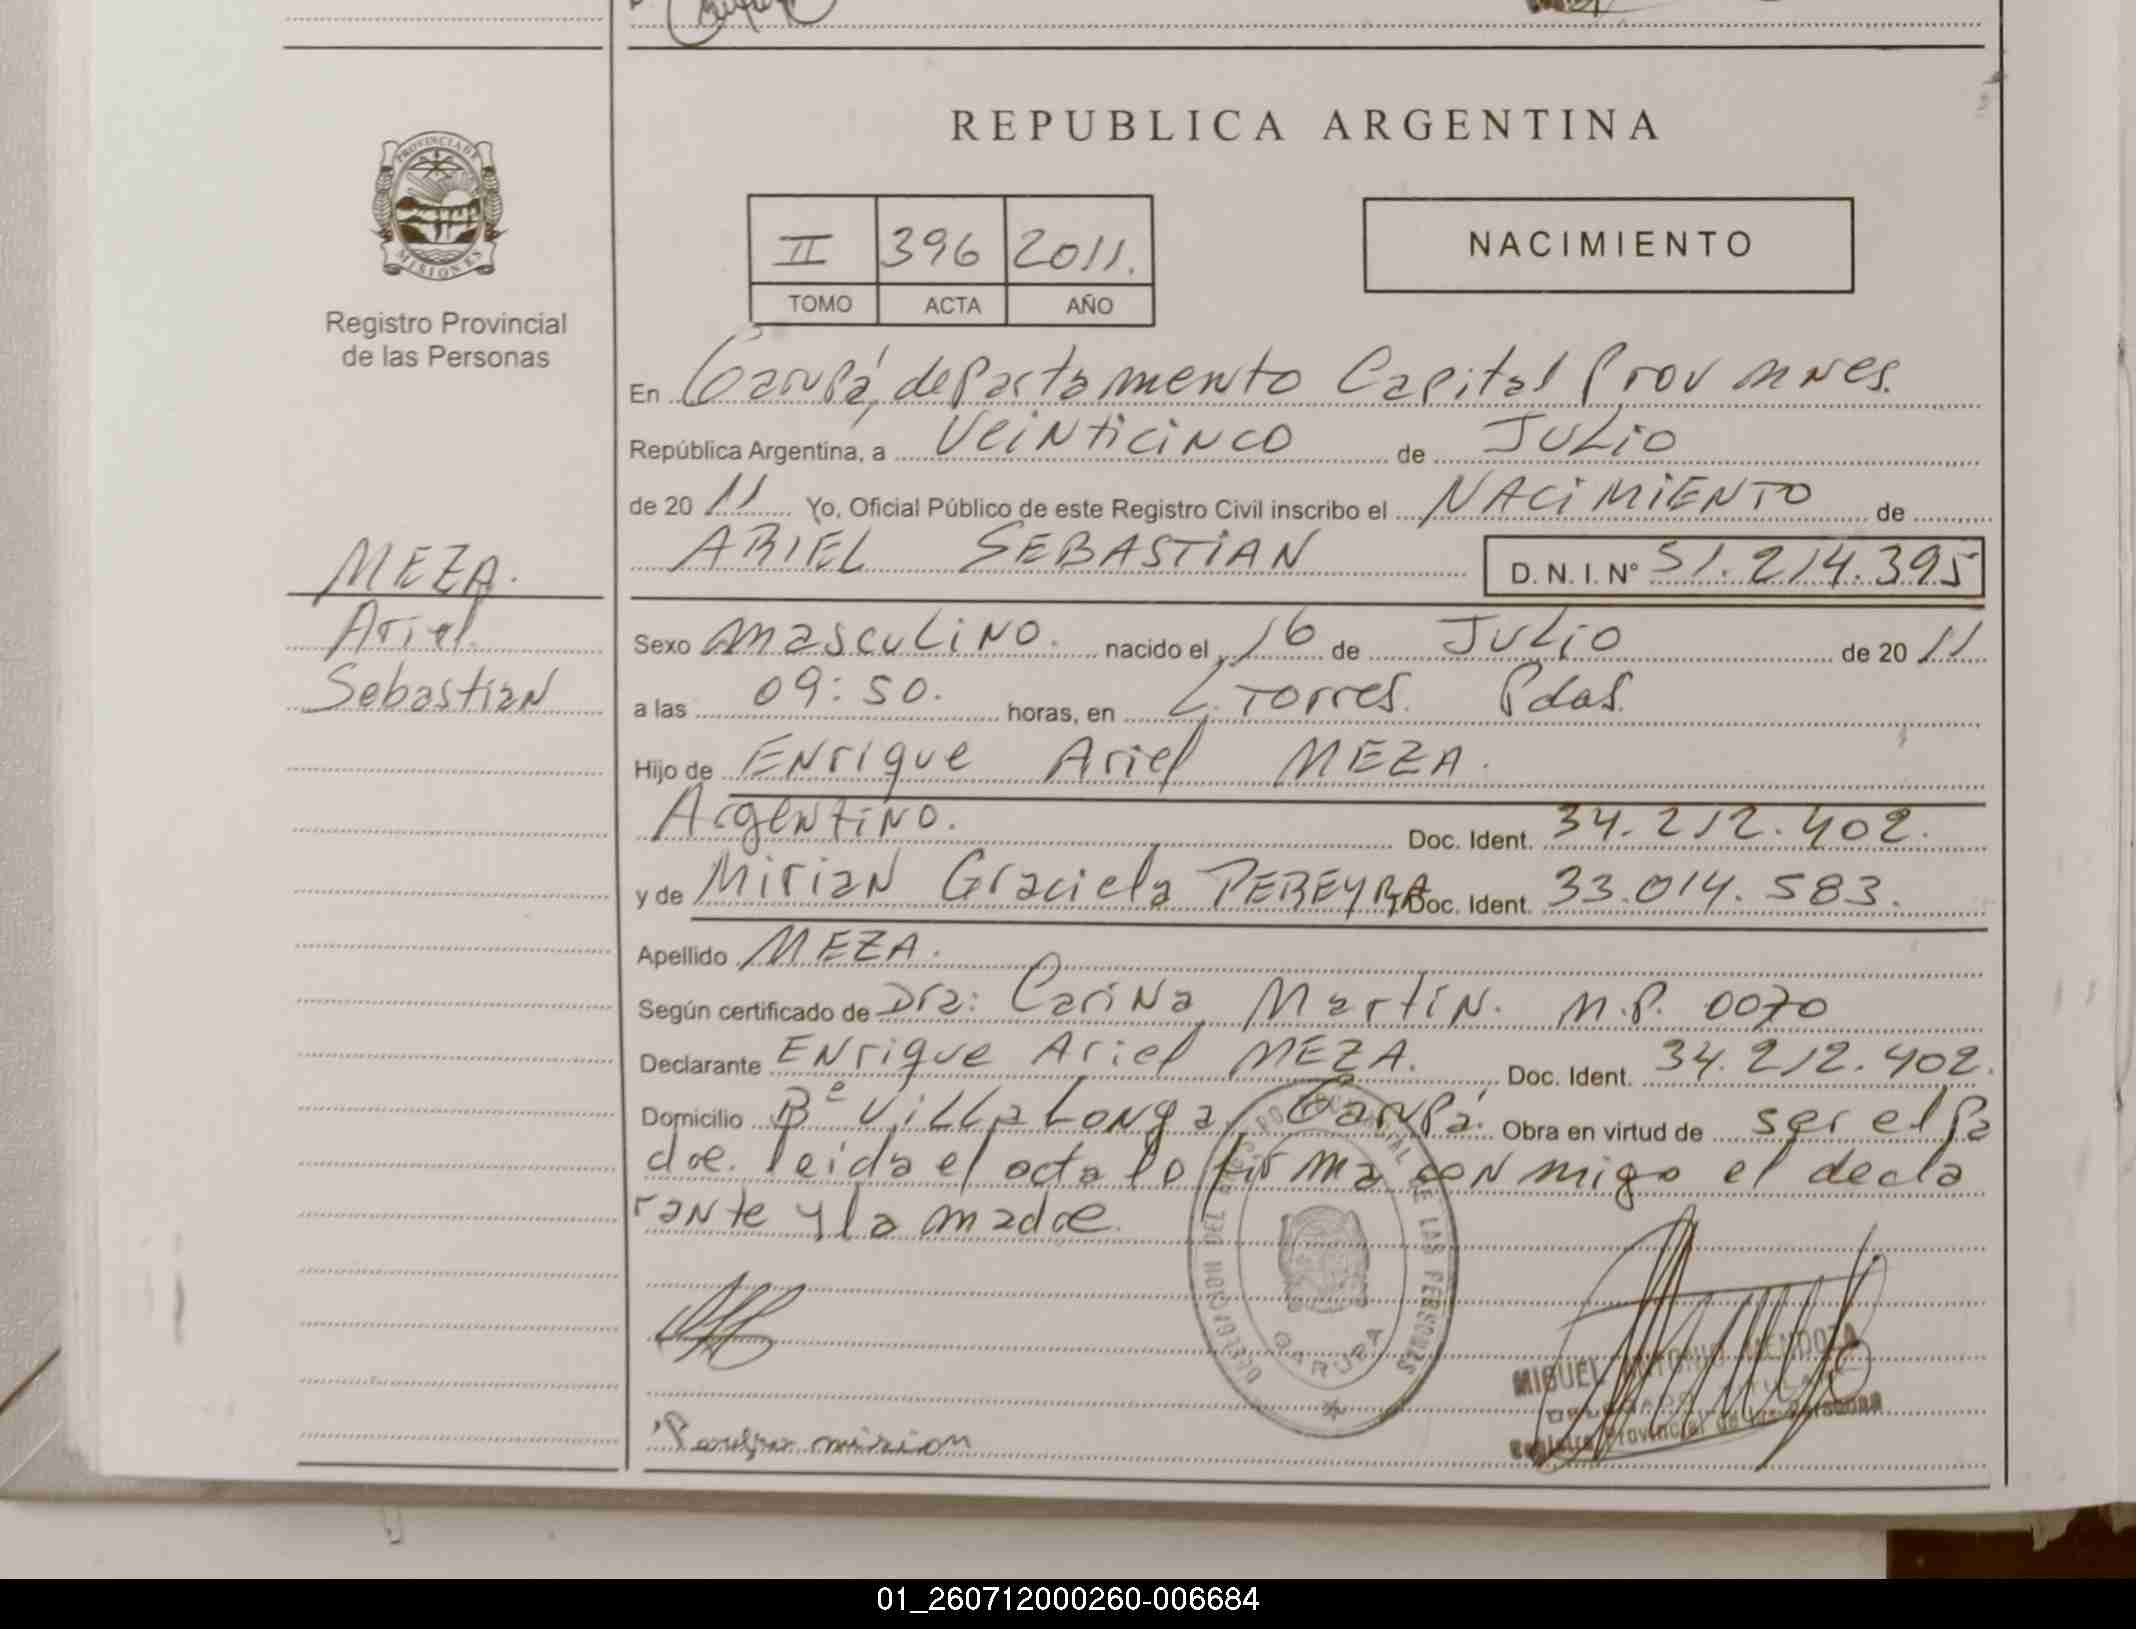 REPUBLICA ARGENTINA
PROVINCIA DE
MISIONES
Registro Provincial
de las Personas
II 396 2011.
TOMO ACTA AÑO
NACIMIENTO
En Garupá, departamento Capital Prov Mnes.
República Argentina, a Veinticinco de Julio
de 20 11 Yo, Oficial Público de este Registro Civil inscribo el NACIMIENTO de
ARIEL SEBASTIAN D. N. I. Nº 51.214.395
MEZA.
Ariel
Sebastian
Sexo masculino. nacido el 16 de Julio de 20 11
a las 09:50. horas, en L. Torres. Pdas.
Hijo de Enrique Ariel MEZA.
Argentino. Doc. Ident. 34.212.402.
y de Mirian Graciela PEREYRA Doc. Ident. 33.014.583.
Apellido MEZA.
Según certificado de Dra: Carina Martin. M.P. 0070
Declarante Enrique Ariel MEZA. Doc. Ident. 34.212.402.
Domicilio Bº Villa Longa, Garupá. Obra en virtud de ser el pa
dre. leida el acta lo firma conmigo el decla
rante y la madre.
DELEGACION DEL REGISTRO PROVINCIAL DE LAS PERSONAS
GARUPA
MIGUEL ANTONIO MENDOZA
DELEGADO TITULAR
Registro Provincial de las Personas
mirian
01_260712000260-006684